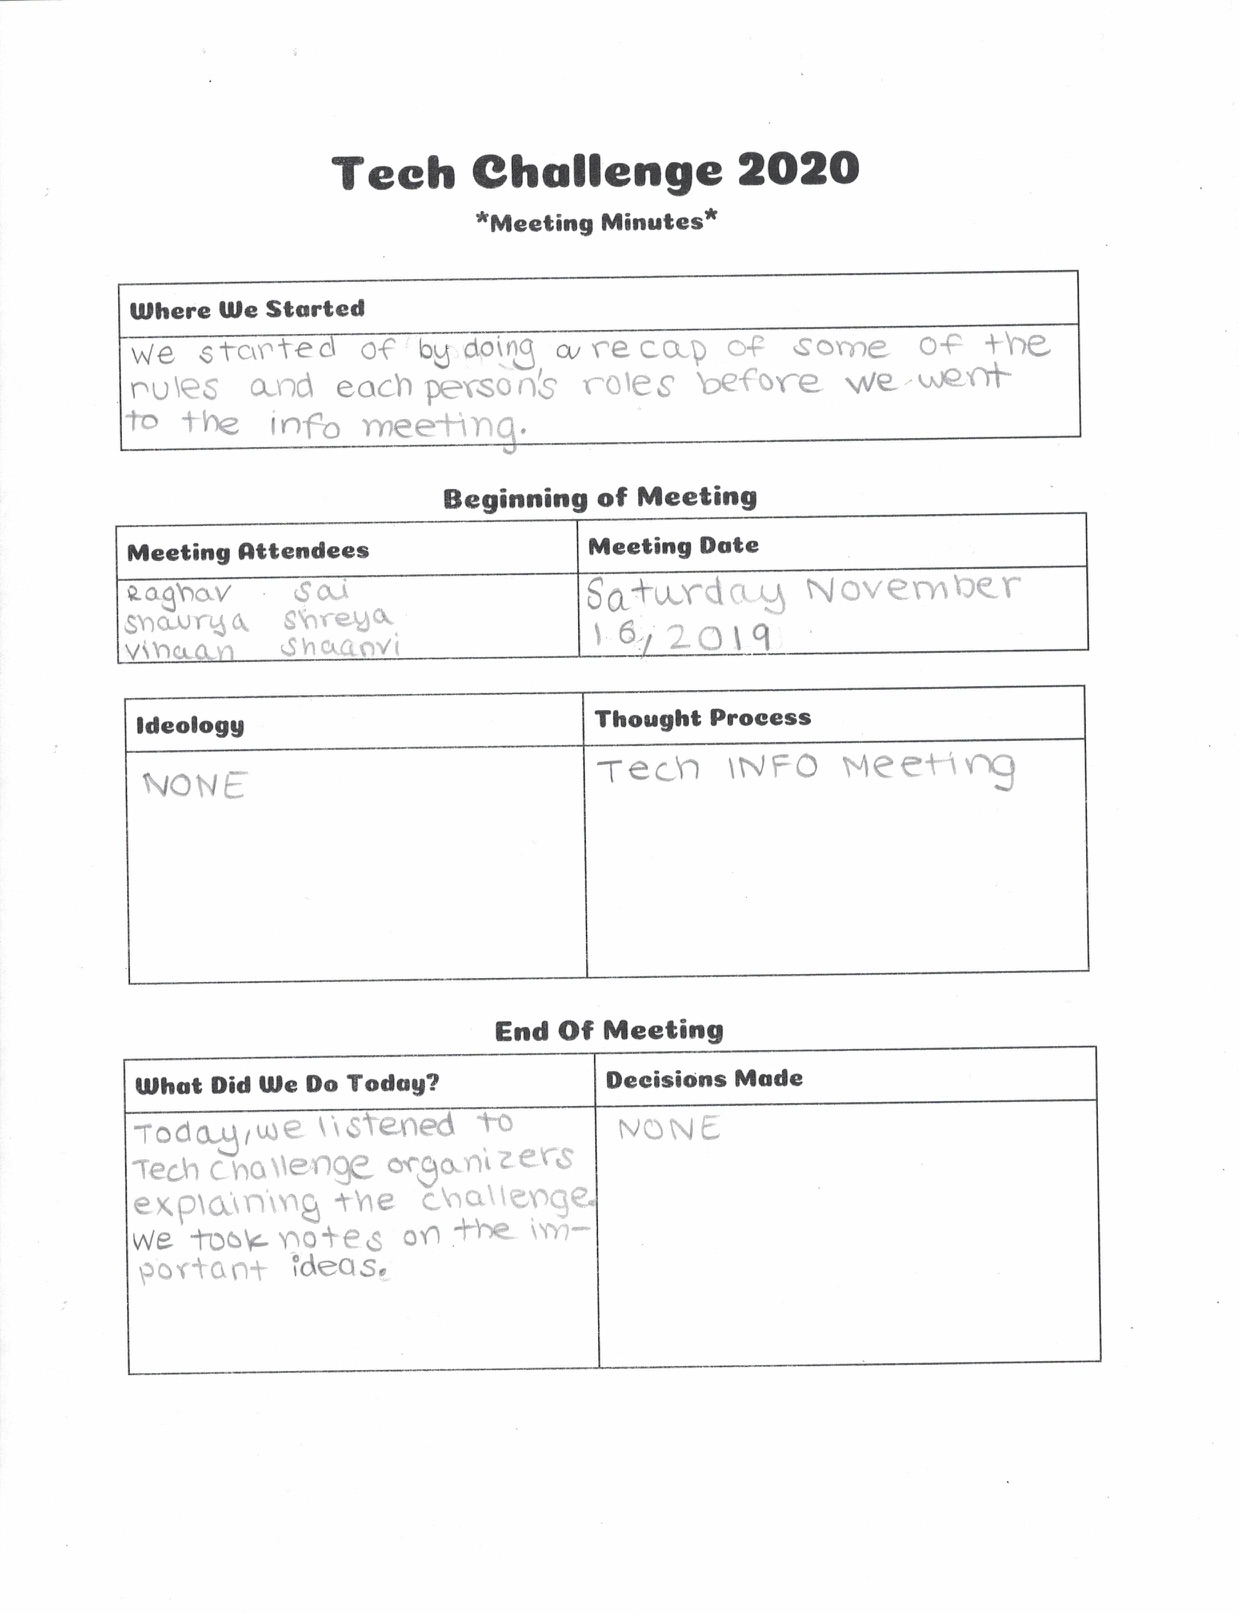 Tech Challenge 2020
*Meeting Minutes*
Where We Started
We started of by doing a recap of some of the
rules and each person's roles before we went
to the info meeting.
Beginning of Meeting
Meeting Attendees
Meeting Date
Raghav Sai
Shaurya Shreya
Vihaan Shaanvi
Saturday November
16, 2019
Ideology
Thought Process
NONE
Tech INFO Meeting
End Of Meeting
What Did We Do Today?
Decisions Made
Today, we listened to
Tech Challenge organizers
explaining the challenge.
We took notes on the im-
portant ideas.
NONE